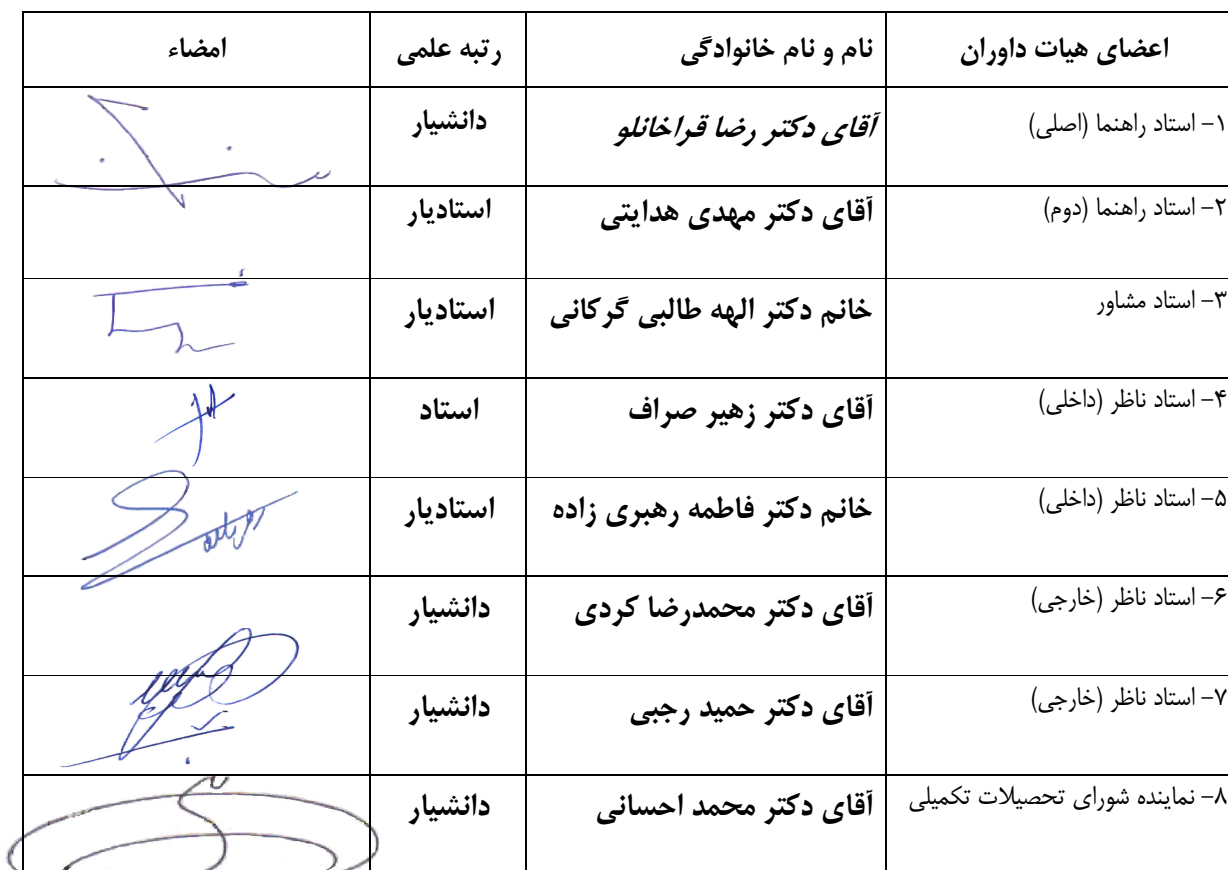 اعضای هیات داوران نام و نام خانوادگی رتبه علمی امضاء
۱- استاد راهنما (اصلی) آقای دکتر رضا قراخانلو دانشیار
۲- استاد راهنما (دوم) آقای دکتر مهدی هدایتی استادیار
۳- استاد مشاور خانم دکتر الهه طالبی گرکانی استادیار
۴- استاد ناظر (داخلی) آقای دکتر زهیر صراف استاد
۵- استاد ناظر (داخلی) خانم دکتر فاطمه رهبری زاده استادیار
۶- استاد ناظر (خارجی) آقای دکتر محمدرضا کردی دانشیار
۷- استاد ناظر (خارجی) آقای دکتر حمید رجبی دانشیار
۸- نماینده شورای تحصیلات تکمیلی آقای دکتر محمد احسانی دانشیار